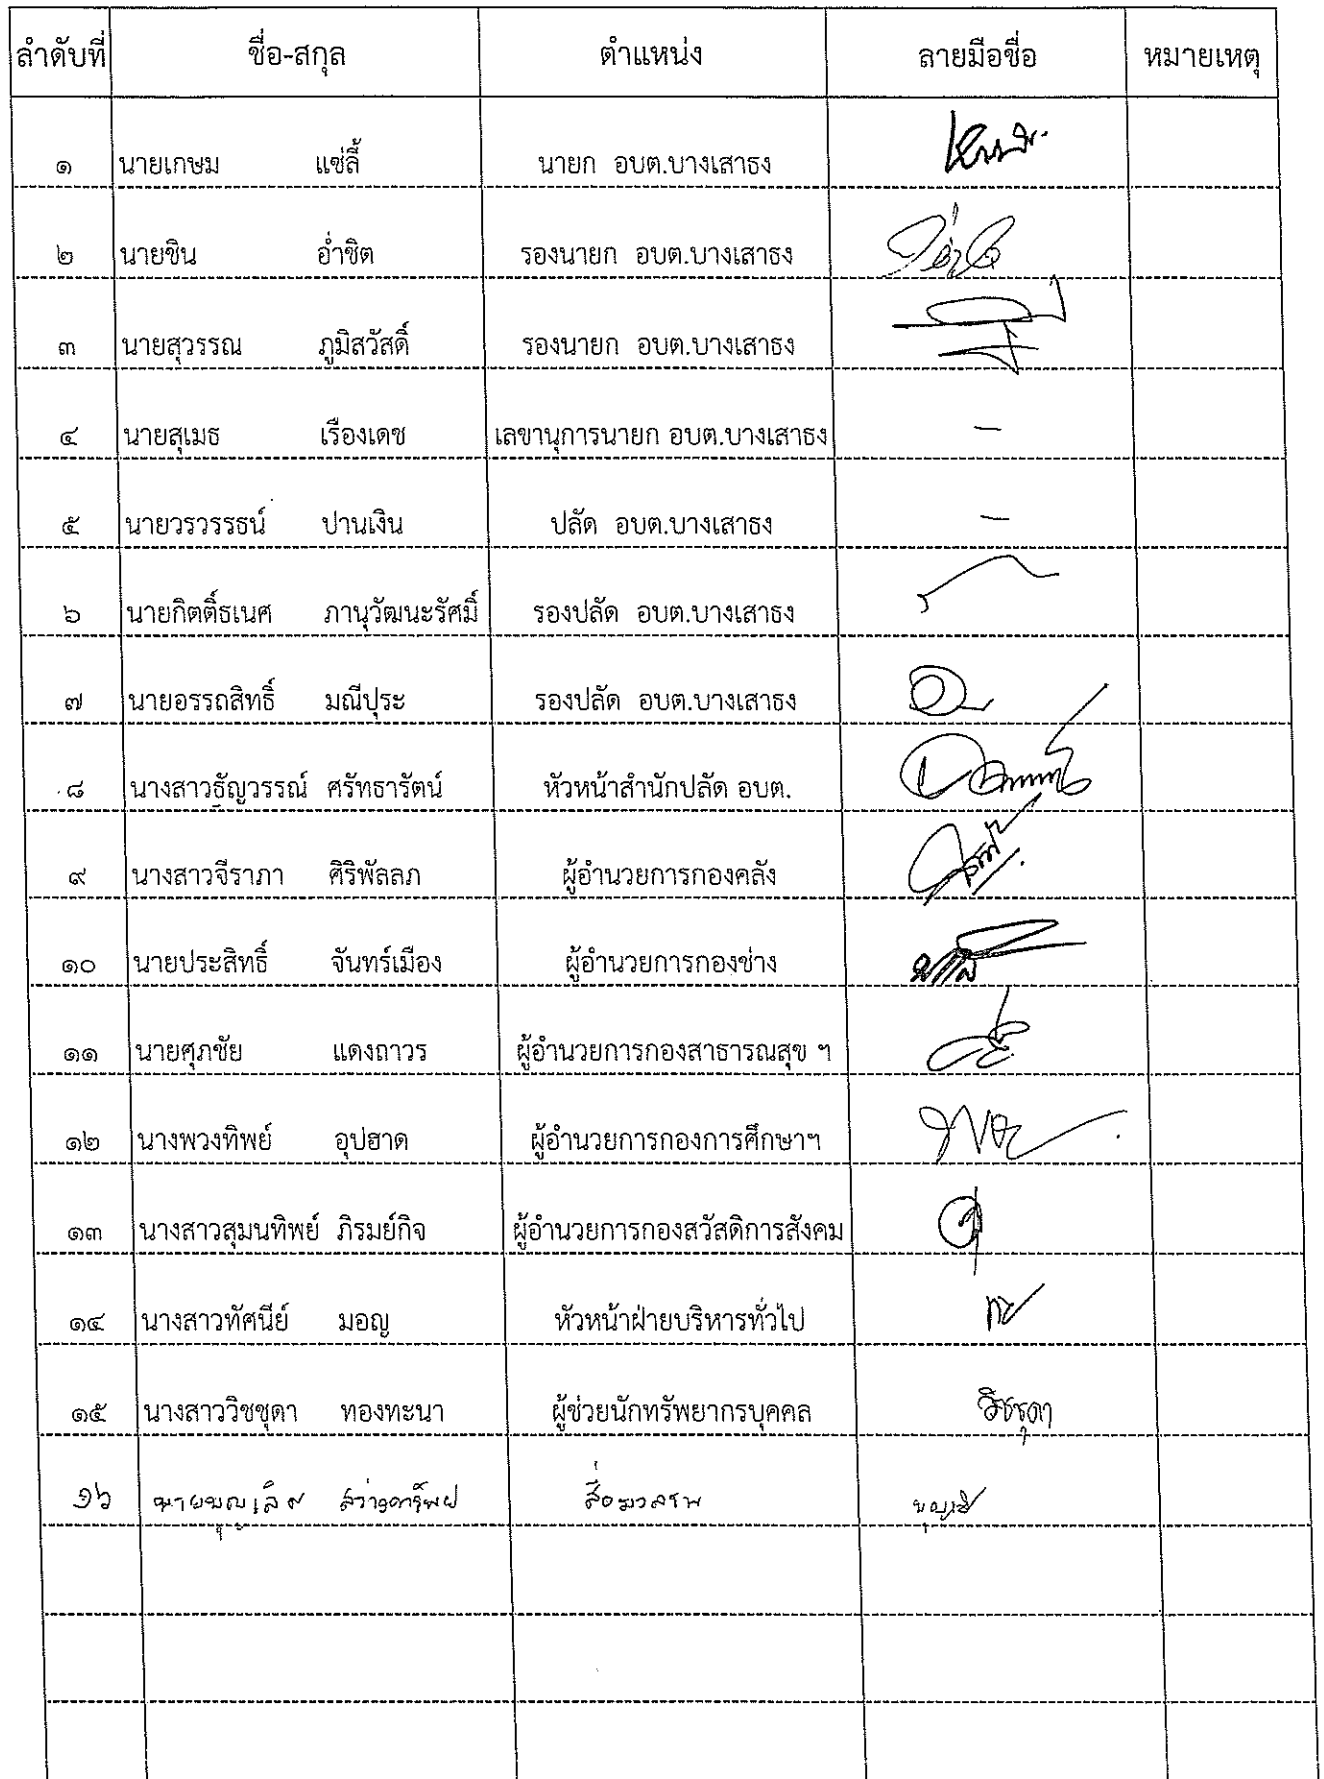 ลำดับที่ ชื่อ-สกุล ตำแหน่ง ลายมือชื่อ หมายเหตุ
๑ นายเกษม แซ่ลี้ นายก อบต.บางเสาธง
๒ นายชิน อ่ำชิต รองนายก อบต.บางเสาธง
๓ นายสุวรรณ ภูมิสวัสดิ์ รองนายก อบต.บางเสาธง
๔ นายสุเมธ เรืองเดช เลขานุการนายก อบต.บางเสาธง –
๕ นายวรวรรธน์ ปานเงิน ปลัด อบต.บางเสาธง –
๖ นายกิตติ์ธเนศ ภานุวัฒนะรัศมิ์ รองปลัด อบต.บางเสาธง
๗ นายอรรถสิทธิ์ มณีปุระ รองปลัด อบต.บางเสาธง
๘ นางสาวธัญวรรณ์ ศรัทธารัตน์ หัวหน้าสำนักปลัด อบต.
๙ นางสาวจีราภา ศิริพัลลภ ผู้อำนวยการกองคลัง
๑๐ นายประสิทธิ์ จันทร์เมือง ผู้อำนวยการกองช่าง
๑๑ นายศุภชัย แดงถาวร ผู้อำนวยการกองสาธารณสุข ฯ
๑๒ นางพวงทิพย์ อุปฮาด ผู้อำนวยการกองการศึกษาฯ
๑๓ นางสาวสุมนทิพย์ ภิรมย์กิจ ผู้อำนวยการกองสวัสดิการสังคม
๑๔ นางสาวทัศนีย์ มอญ หัวหน้าฝ่ายบริหารทั่วไป
๑๕ นางสาววิชชุดา ทองทะนา ผู้ช่วยนักทรัพยากรบุคคล วิชชุดา
๑๖ นายบุญเลิศ สื่อมวลชน